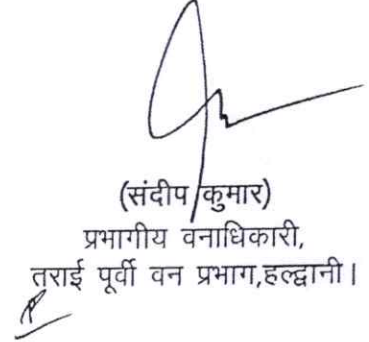 (संदीप कुमार)
प्रभागीय वनाधिकारी,
तराई पूर्वी वन प्रभाग,हल्द्वानी।